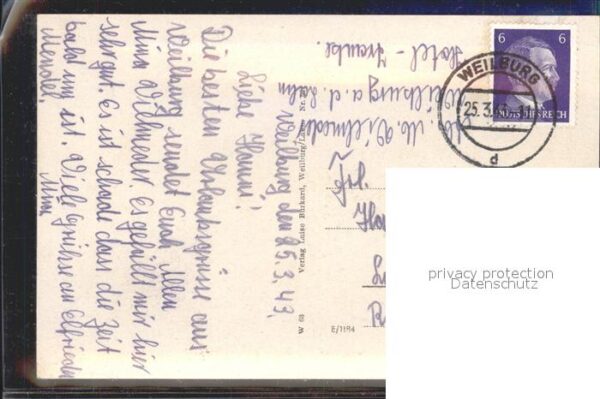 Weilburg, den 25.3.43.
Liebe Hanni!
Die besten Urlaubsgrüsse aus
Weilburg sendet Euch Allen
Mina Villmeder. Es gefällt mir hier
sehr gut. Es ist schade dass die Zeit
bald um ist. Viele Grüsse an Elfriede
Mina
Abs. M. Villmeder
Weilburg a. d. Lahn
Hotel-
W 68 Verlag Luise Burkard, Weilburg/Lahn Nr.
E/1184
6 6
DEUTSCHES REICH
WEILBURG
25.3.43
d
Frl.
privacy protection
Datenschutz